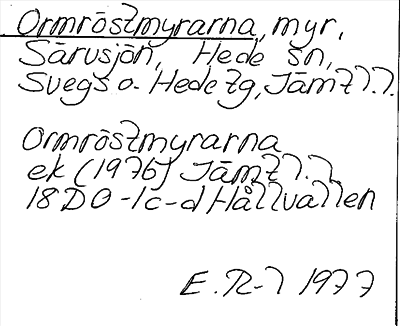 Ormröstmyrarna, myr,
Särvsjön, Hede sn,
Svegs o. Hede tg, Jämtl l.
Ormröstmyrarna
ek (1976) Jämtl l.
18D 0-1c-d Hållvallen
E. R-l 1977